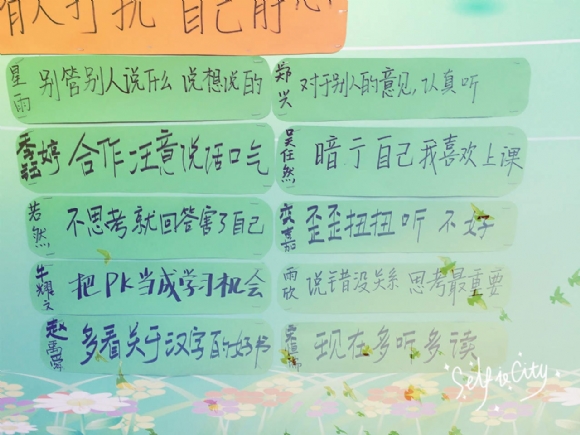 有人打扰 自己静
星雨 别管别人说什么 说想说的
郑兴 对于别人的意见,认真听
婷 合作注意说话口气
吴任然 暗示自己我喜欢上课
若然 不思考就回答害了自己
奕嘉 歪歪扭扭听 不好
牛耀文 把PK当成学习机会
雨欣 说错没关系 思考最重要
赵禹 多看关于汉字的好书
现在多听多读
Self is City